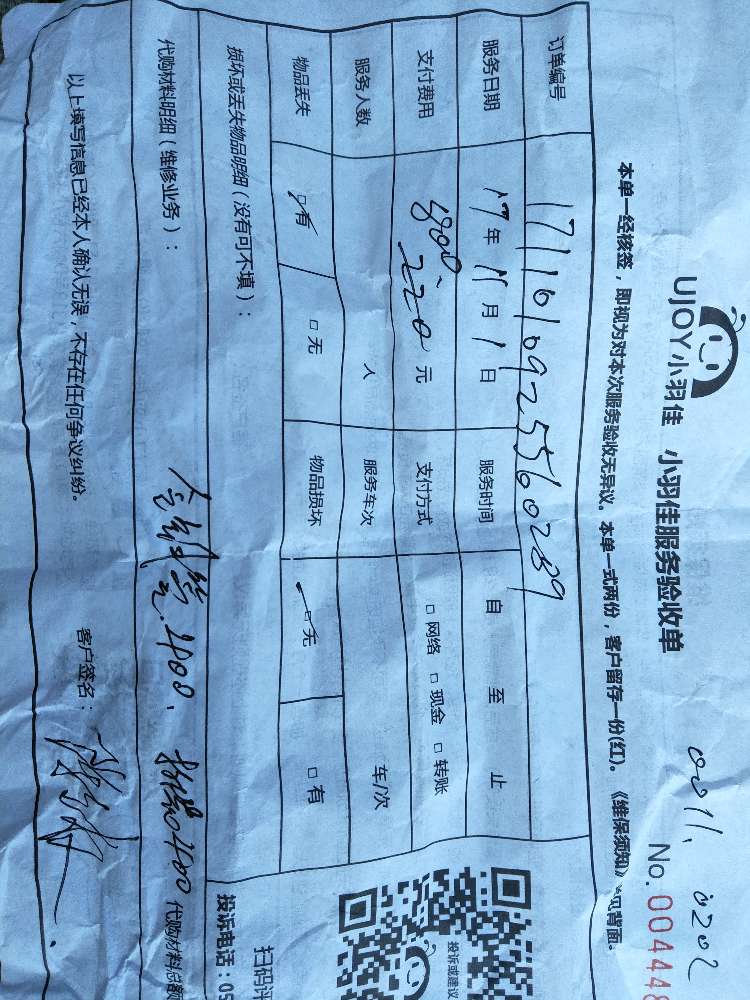 UJOY小羽佳 小羽佳服务验收单
0011.0202
No. 00444
本单一经核签，即视为对本次服务验收无异议。本单一式两份，客户留存一份(红)。《维保须知》见背面。
订单编号 1711010925560289
服务日期 17年11月1日 服务时间 自 至 止
支付费用 4800、220元 支付方式 □网络 □现金 □转账
服务人数 人 服务车次 车/次
物品丢失 □有 □无 物品损坏 □无 □有
损坏或丢失物品明细（没有可不填）：
代购材料明细（维修业务）： 400、 400 代购材料总额
以上填写信息已经本人确认无误，不存在任何争议纠纷。 客户签名：
投诉或建议
扫码评
投诉电话：05